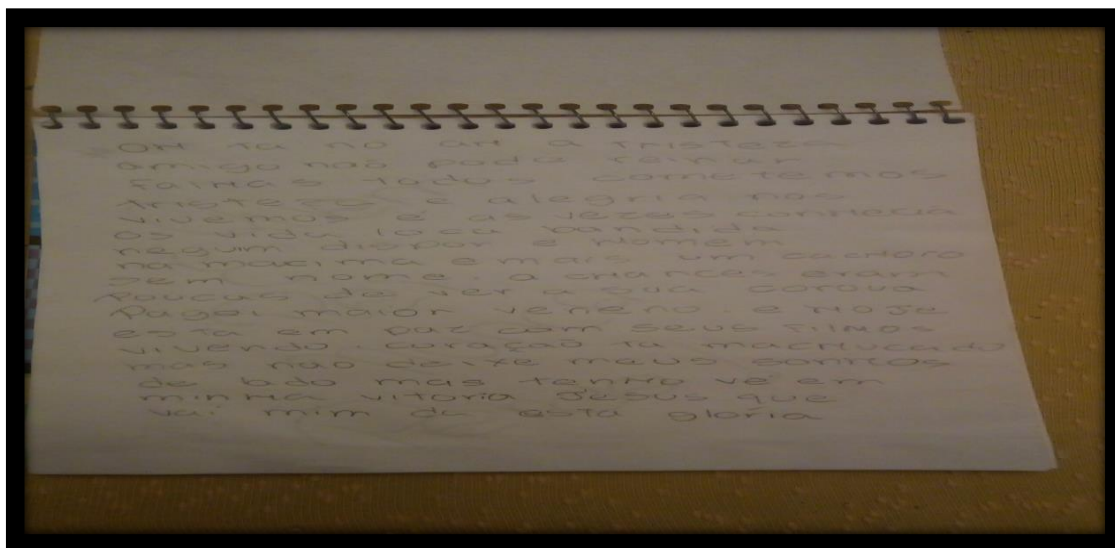 OH ta no aH a Tristeza
amigo nao pode reinar
FaiHas Todos comeTemos
TrisTeza e alegria nos
vivemos e as vezes conHecia
os vida loca bandida
neguim dispor e Homem
na macima e mais um cacHoro
sem nome. a cHances eram
Poucas de ver a sua coroua
Pagei maior veneno. e Hoje
esta em paz com seus FilHos
vivendo. curaçao Ta macHucado
mas nao deixe meus sonHos
de lado mas TenHo vé em
minHa viToria Jesus que
vai mim da esta gloria